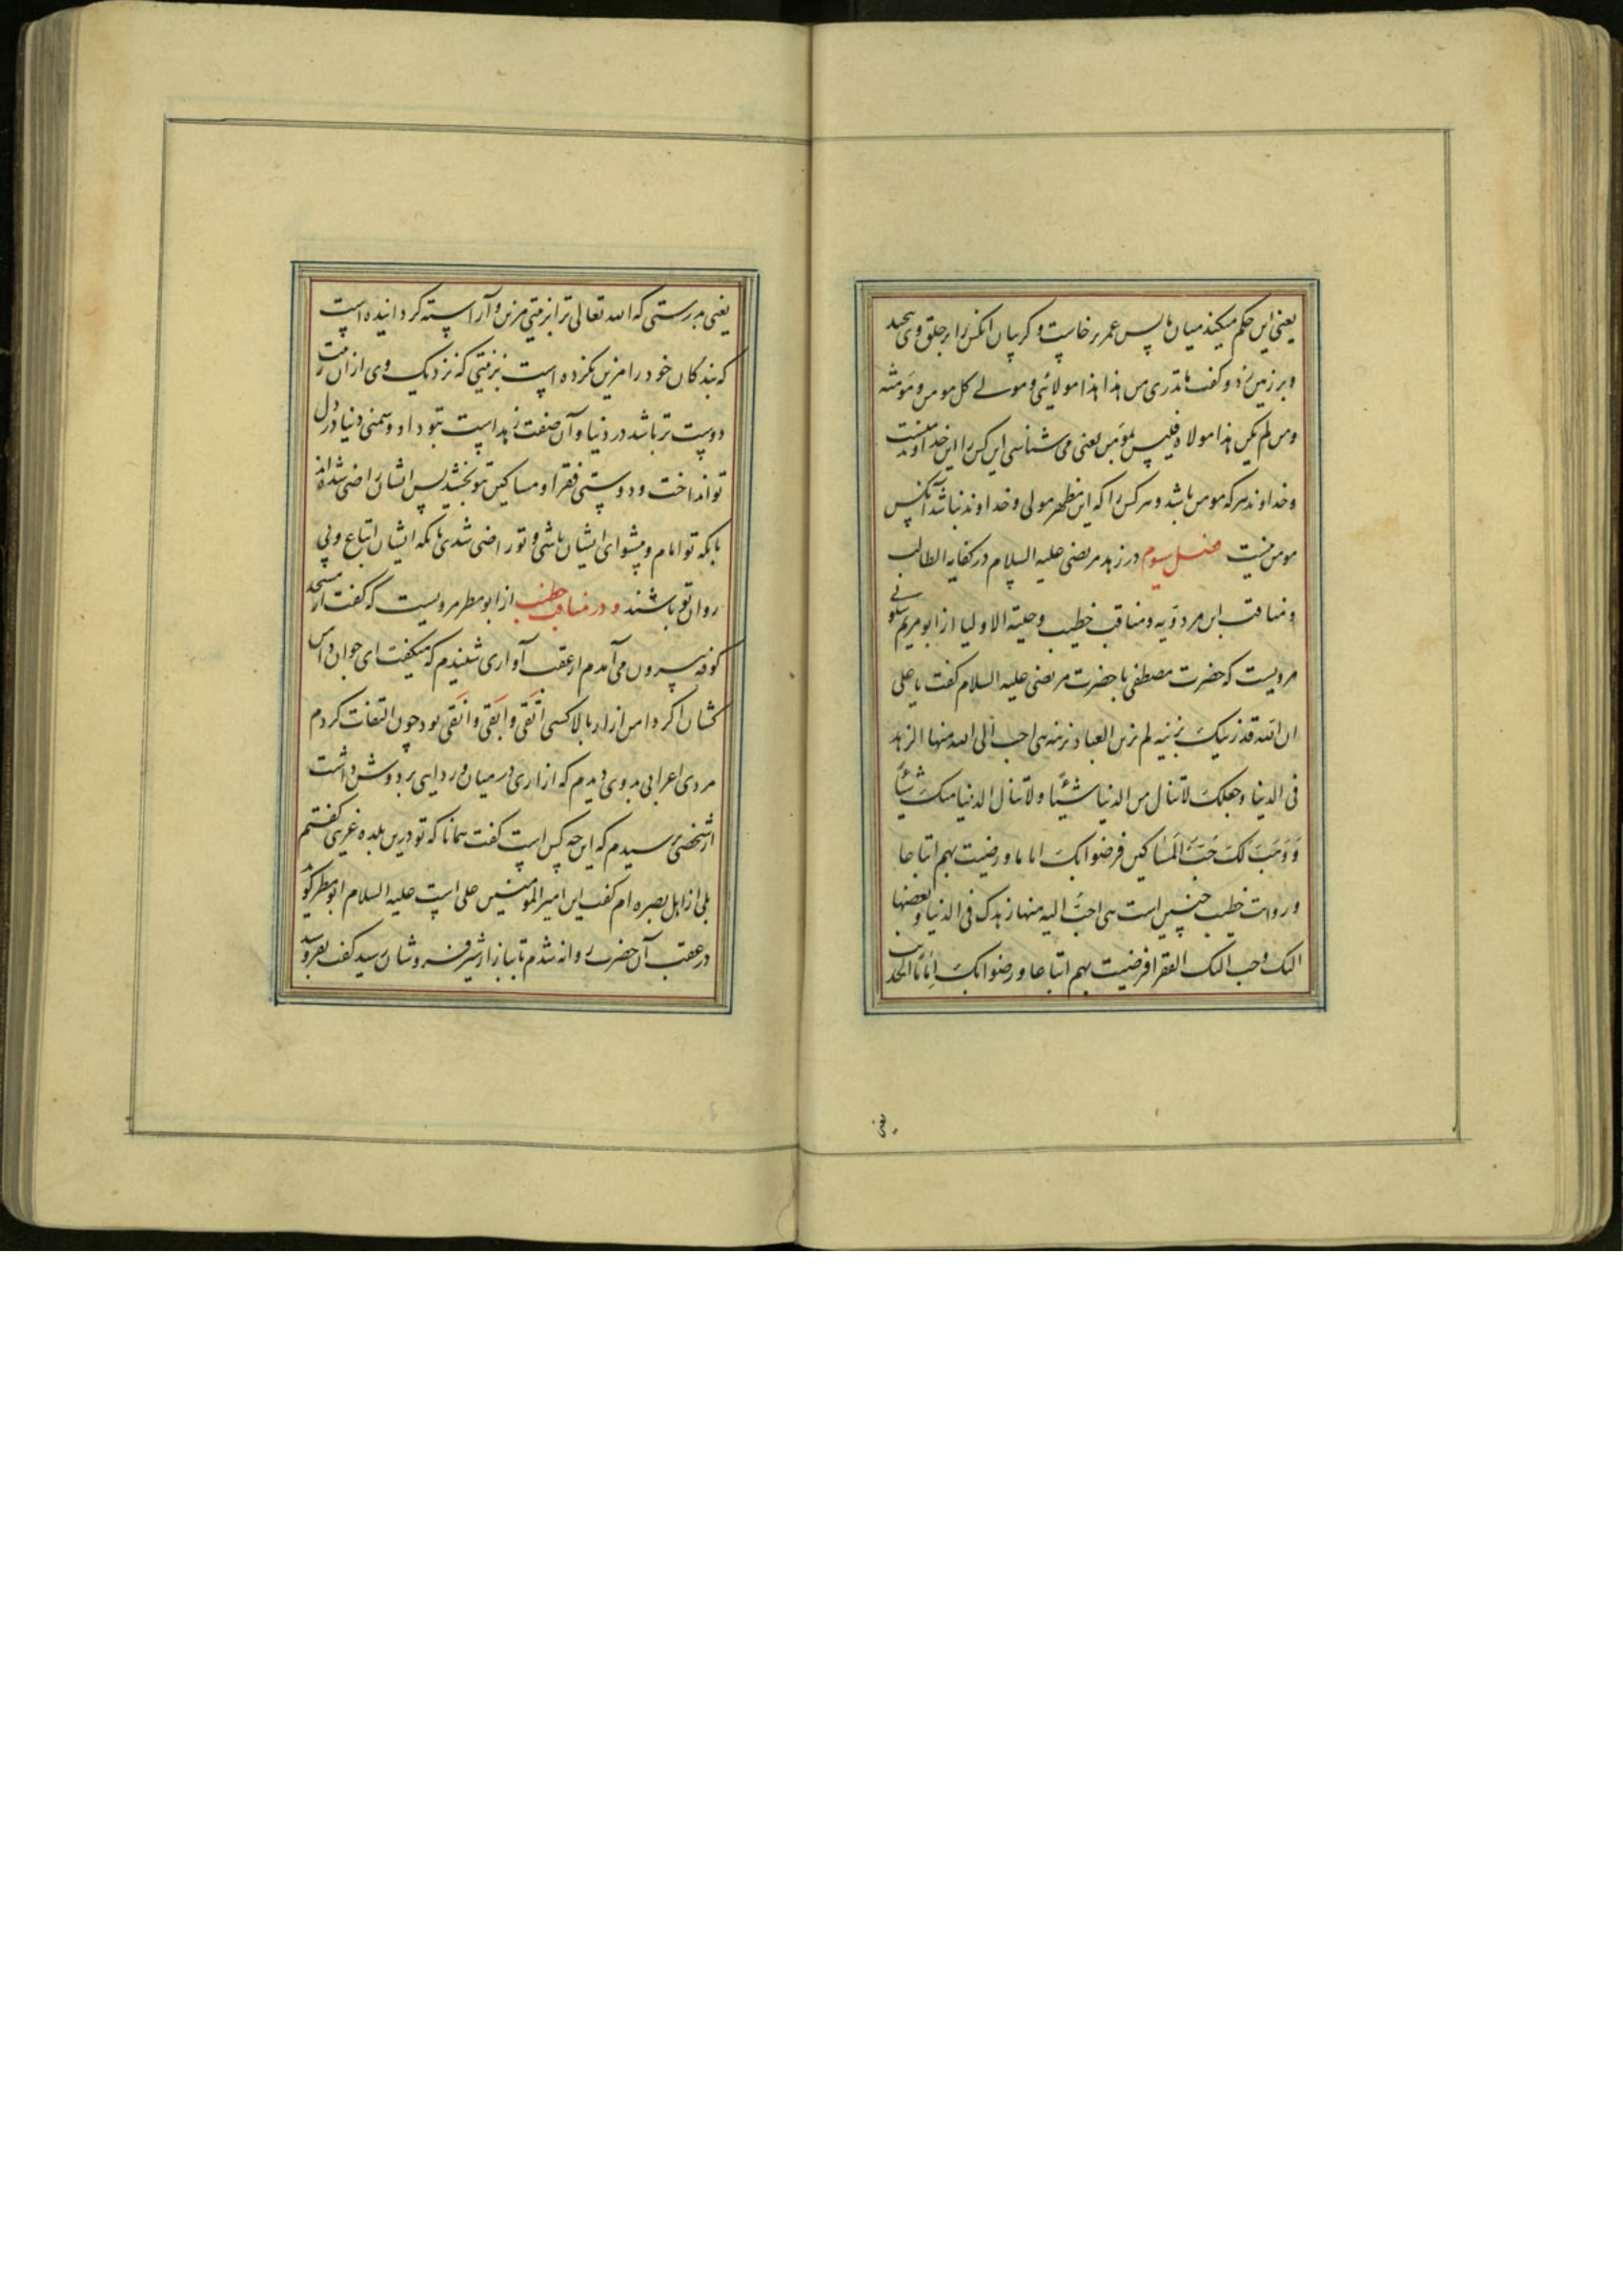 یعنی این حکم میکند میان ما پس عمر برخاست و کریبان انکس را بر حلق وی پیچید
و بر زمین زد و کفت ما تدری من هذا هذا مولائی و مولی کل مومن و مؤمنه
و من لم یکن هذا مولاه فلیس بمؤمن یعنی می شناسی این کس را این خداوند منست
و خداوند هر که مومن باشد و هر کس را که این مظهر مولی و خداوند نباشد آنکس
مومن نیست فصل سیوم در زهد مرتضی علیه السلام در کفایه الطالب
و مناقب ابن مردویه و مناقب خطیب و حلیة الاولیا از ابو مریم سلولی
مرویست که حضرت مصطفی با حضرت مرتضی علیه السلام کفت یا علی
ان الله قد زینک بزینه لم یزین العباد بزینه هی احب الی الله منها الزهد
فی الدنیا و جعلک لا تنال من الدنیا شیئا و لا تنال الدنیا منک شیئا
وَ وَهَبَ لکَ حُبَّ المَساکین فرضوا بکَ اماما و رضیت بهم اتباعا
و روایت خطیب چنین است هی احبّ الیه منها زهدک فی الدنیا و بغضها
الیک و حبب الیک الفقرا فرضیت بهم اتباعا و رضوا بکَ اِمَامًا الحدیث
یعنی
یعنی بدرستی که الله تعالی ترا بزینتی مزین و آراسته کردانیده است
که بندکان خود را مزین نکرده است بزینتی که نزدیک وی از ان زینت
دوست تر باشد در دنیا و آن صفت زهد است بتو داد و دشمنی دنیا در دل
تو انداخت و دوستی فقرا و مساکین بتو بخشید پس ایشان راضی شده اند
بانکه تو امام و پیشوای ایشان باشی و تو راضی شدی بانکه ایشان اتباع و پی
روان تو باشند و در مناقب خطیب از ابو مطر مرویست که کفت از مسجد
کوفه بیرون می آمدم از عقب آوازی شنیدم که میکفت ای جوان دامن
کشان اکر دامن ازار بالا کشی اتقی و ابقی و انقی بود چون التفات کردم
مردی اعرابی بدوی دیدم که ازاری در میان و ردایی بر دوش داشت
از شخصی پرسیدم که این چه کس است کفت همانا که تو درین بلده غریبی کفتم
بلی از اهل بصره ام کفت این امیر المومنین علی است علیه السلام ابو مطر کوید
در عقب آن حضرت روانه شدم تا ببازار شتر فروشان رسید کفت بفروشید